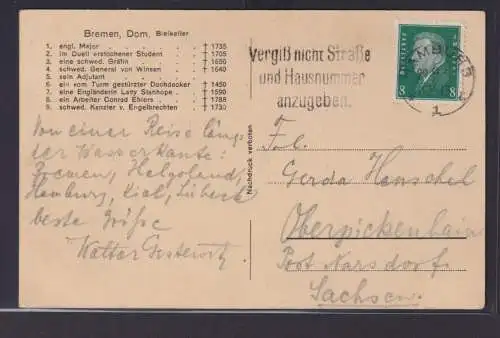 Bremen, Dom, Bleikeller
1. engl. Major . . . † 1735
2. im Duell erstochener Student . † 1705
3. eine schwed. Gräfin . . † 1650
4. schwed. General von Winsen . † 1640
5. sein Adjutant
6. ein vom Turm gestürzter Dachdecker . † 1450
7. eine Engländerin Lady Stanhope . † 1590
8. ein Arbeiter Conrad Ehlers . . † 1788
9. schwed. Kanzler v. Engelbrechten . † 1730
Von einer Reise längs
der Wasserkante:
Bremen, Helgoland,
Hamburg, Kiel, Lübeck
beste Grüße
Walter
Nachdruck verboten
Vergiß nicht Straße
und Hausnummer
anzugeben.
HAMBURG
1
8 8
Frl.
Gerda Henschel
Oberpickenhain
Post Narsdorf
Sachsen.